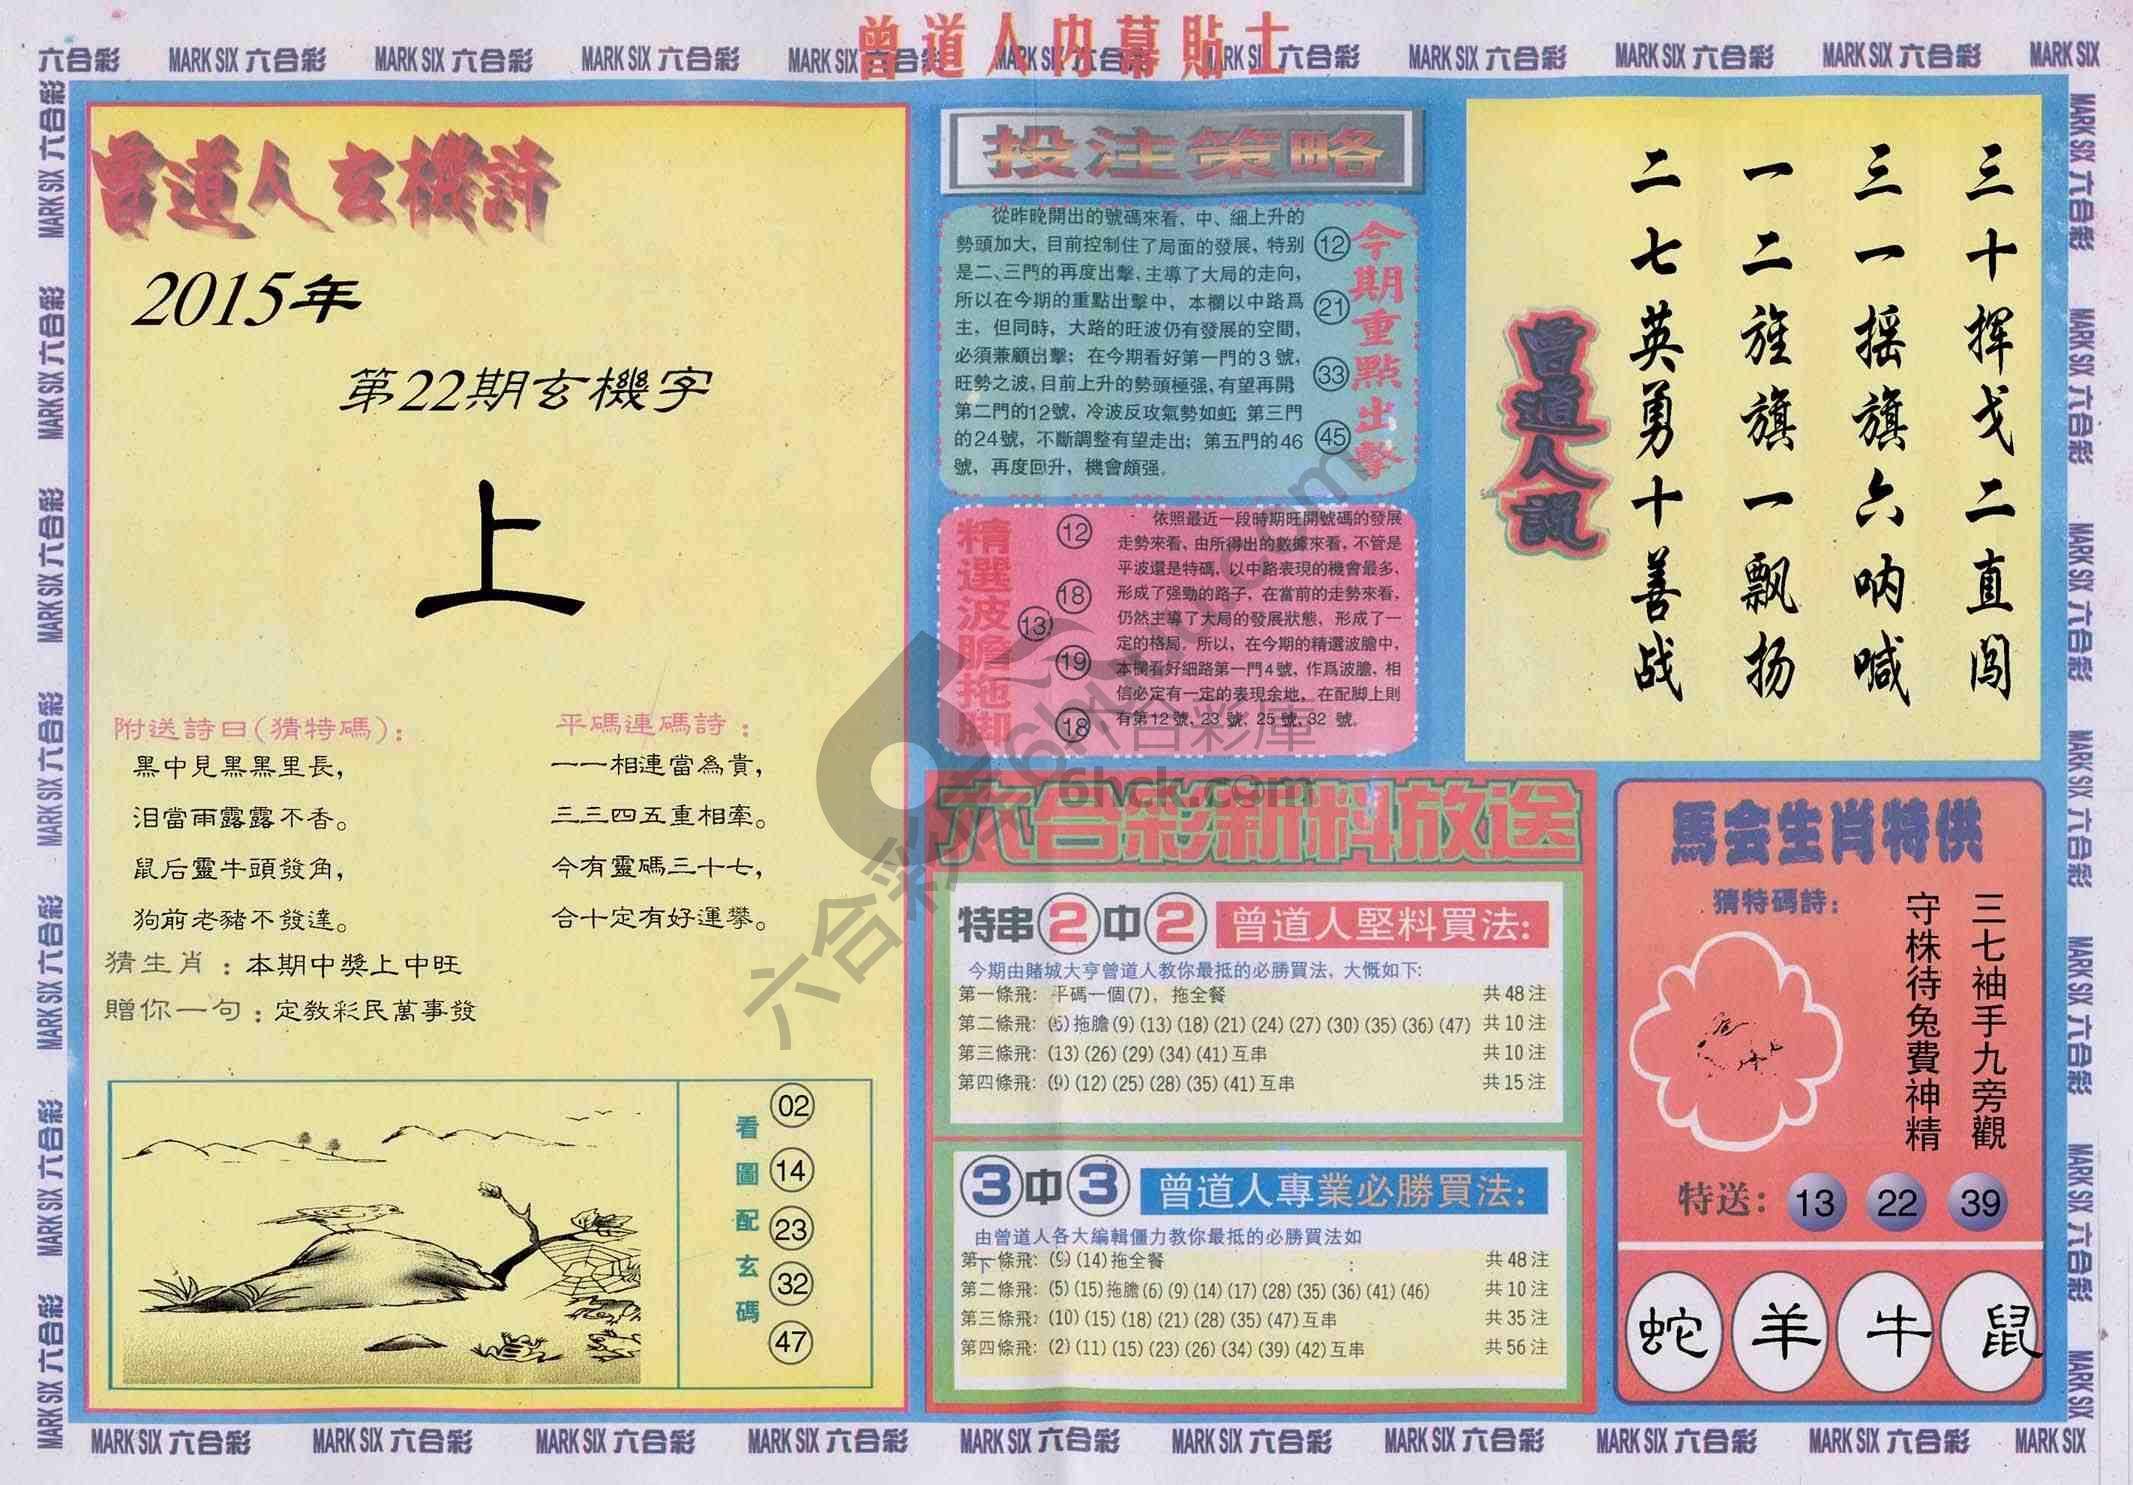 曾道人内幕貼士
六合彩 MARK SIX 六合彩 MARK SIX 六合彩 MARK SIX 六合彩 MARK SIX 六合彩 MARK SIX 六合彩 MARK SIX 六合彩 MARK SIX 六合彩 MARK SIX 六合彩 MARK SIX 六合彩 MARK SIX
曾道人玄機詩
2015年
第22期玄機字
上
附送詩曰(猜特碼):
黑中見黑黑里長,
泪當雨露露不香。
鼠后靈牛頭發角,
狗前老豬不發達。
平碼連碼詩:
一一相連當為貴,
三三四五重相牽。
今有靈碼三十七,
合十定有好運攀。
猜生肖:本期中獎上中旺
贈你一句:定教彩民萬事發
看圖配玄碼
02
14
23
32
47
投注策略
從昨晚開出的號碼來看,中、細上升的
勢頭加大,目前控制住了局面的發展,特别
是二、三門的再度出擊,主導了大局的走向,
所以在今期的重點出擊中,本欄以中路爲
主,但同時,大路的旺波仍有發展的空間,
必須兼顧出擊;在今期看好第一門的3號,
旺勢之波,目前上升的勢頭極强,有望再開;
第二門的12號,冷波反攻氣勢如虹;第三門
的24號,不斷調整有望走出;第五門的46
號,再度回升,機會頗强。
今期重點出擊
12
21
33
45
精選波膽拖脚
12
18
13
19
18
依照最近一段時期旺開號碼的發展
走勢來看,由所得出的數據來看,不管是
平波還是特碼,以中路表現的機會最多,
形成了强勁的路子,在當前的走勢來看,
仍然主導了大局的發展狀態,形成了一
定的格局。所以,在今期的精選波膽中,
本欄看好細路第一門4號,作爲波膽,相
信必定有一定的表現余地,在配脚上則
有第12號,23號,25號,32號。
六合彩新料放送
特串2中2 曾道人堅料買法:
今期由賭城大亨曾道人教你最抵的必勝買法,大概如下:
第一條飛: 平碼一個(7),拖全餐 共48注
第二條飛: (5)拖膽(9)(13)(18)(21)(24)(27)(30)(35)(36)(47) 共10注
第三條飛: (13)(26)(29)(34)(41)互串 共10注
第四條飛: (9)(12)(25)(28)(35)(41)互串 共15注
3中3 曾道人專業必勝買法:
由曾道人各大編輯僵力教你最抵的必勝買法如
下:
第一條飛: (9)(14)拖全餐 共48注
第二條飛: (5)(15)拖膽(6)(9)(14)(17)(28)(35)(36)(41)(46) 共10注
第三條飛: (10)(15)(18)(21)(28)(35)(47)互串 共35注
第四條飛: (2)(11)(15)(23)(26)(34)(39)(42)互串 共56注
三十挥戈二直闯
三一摇旗六呐喊
一二旌旗一飘扬
二七英勇十善战
曾道人說
馬会生肖特供
猜特碼詩:
三七袖手九旁觀
守株待兔費神精
特送: 13 22 39
蛇 羊 牛 鼠
六合彩庫
6hck.com
六合彩庫6hck.com
MARK SIX 六合彩 MARK SIX 六合彩 MARK SIX 六合彩 MARK SIX 六合彩 MARK SIX 六合彩 MARK SIX 六合彩 MARK SIX 六合彩 MARK SIX 六合彩 MARK SIX 六合彩 MARK SIX